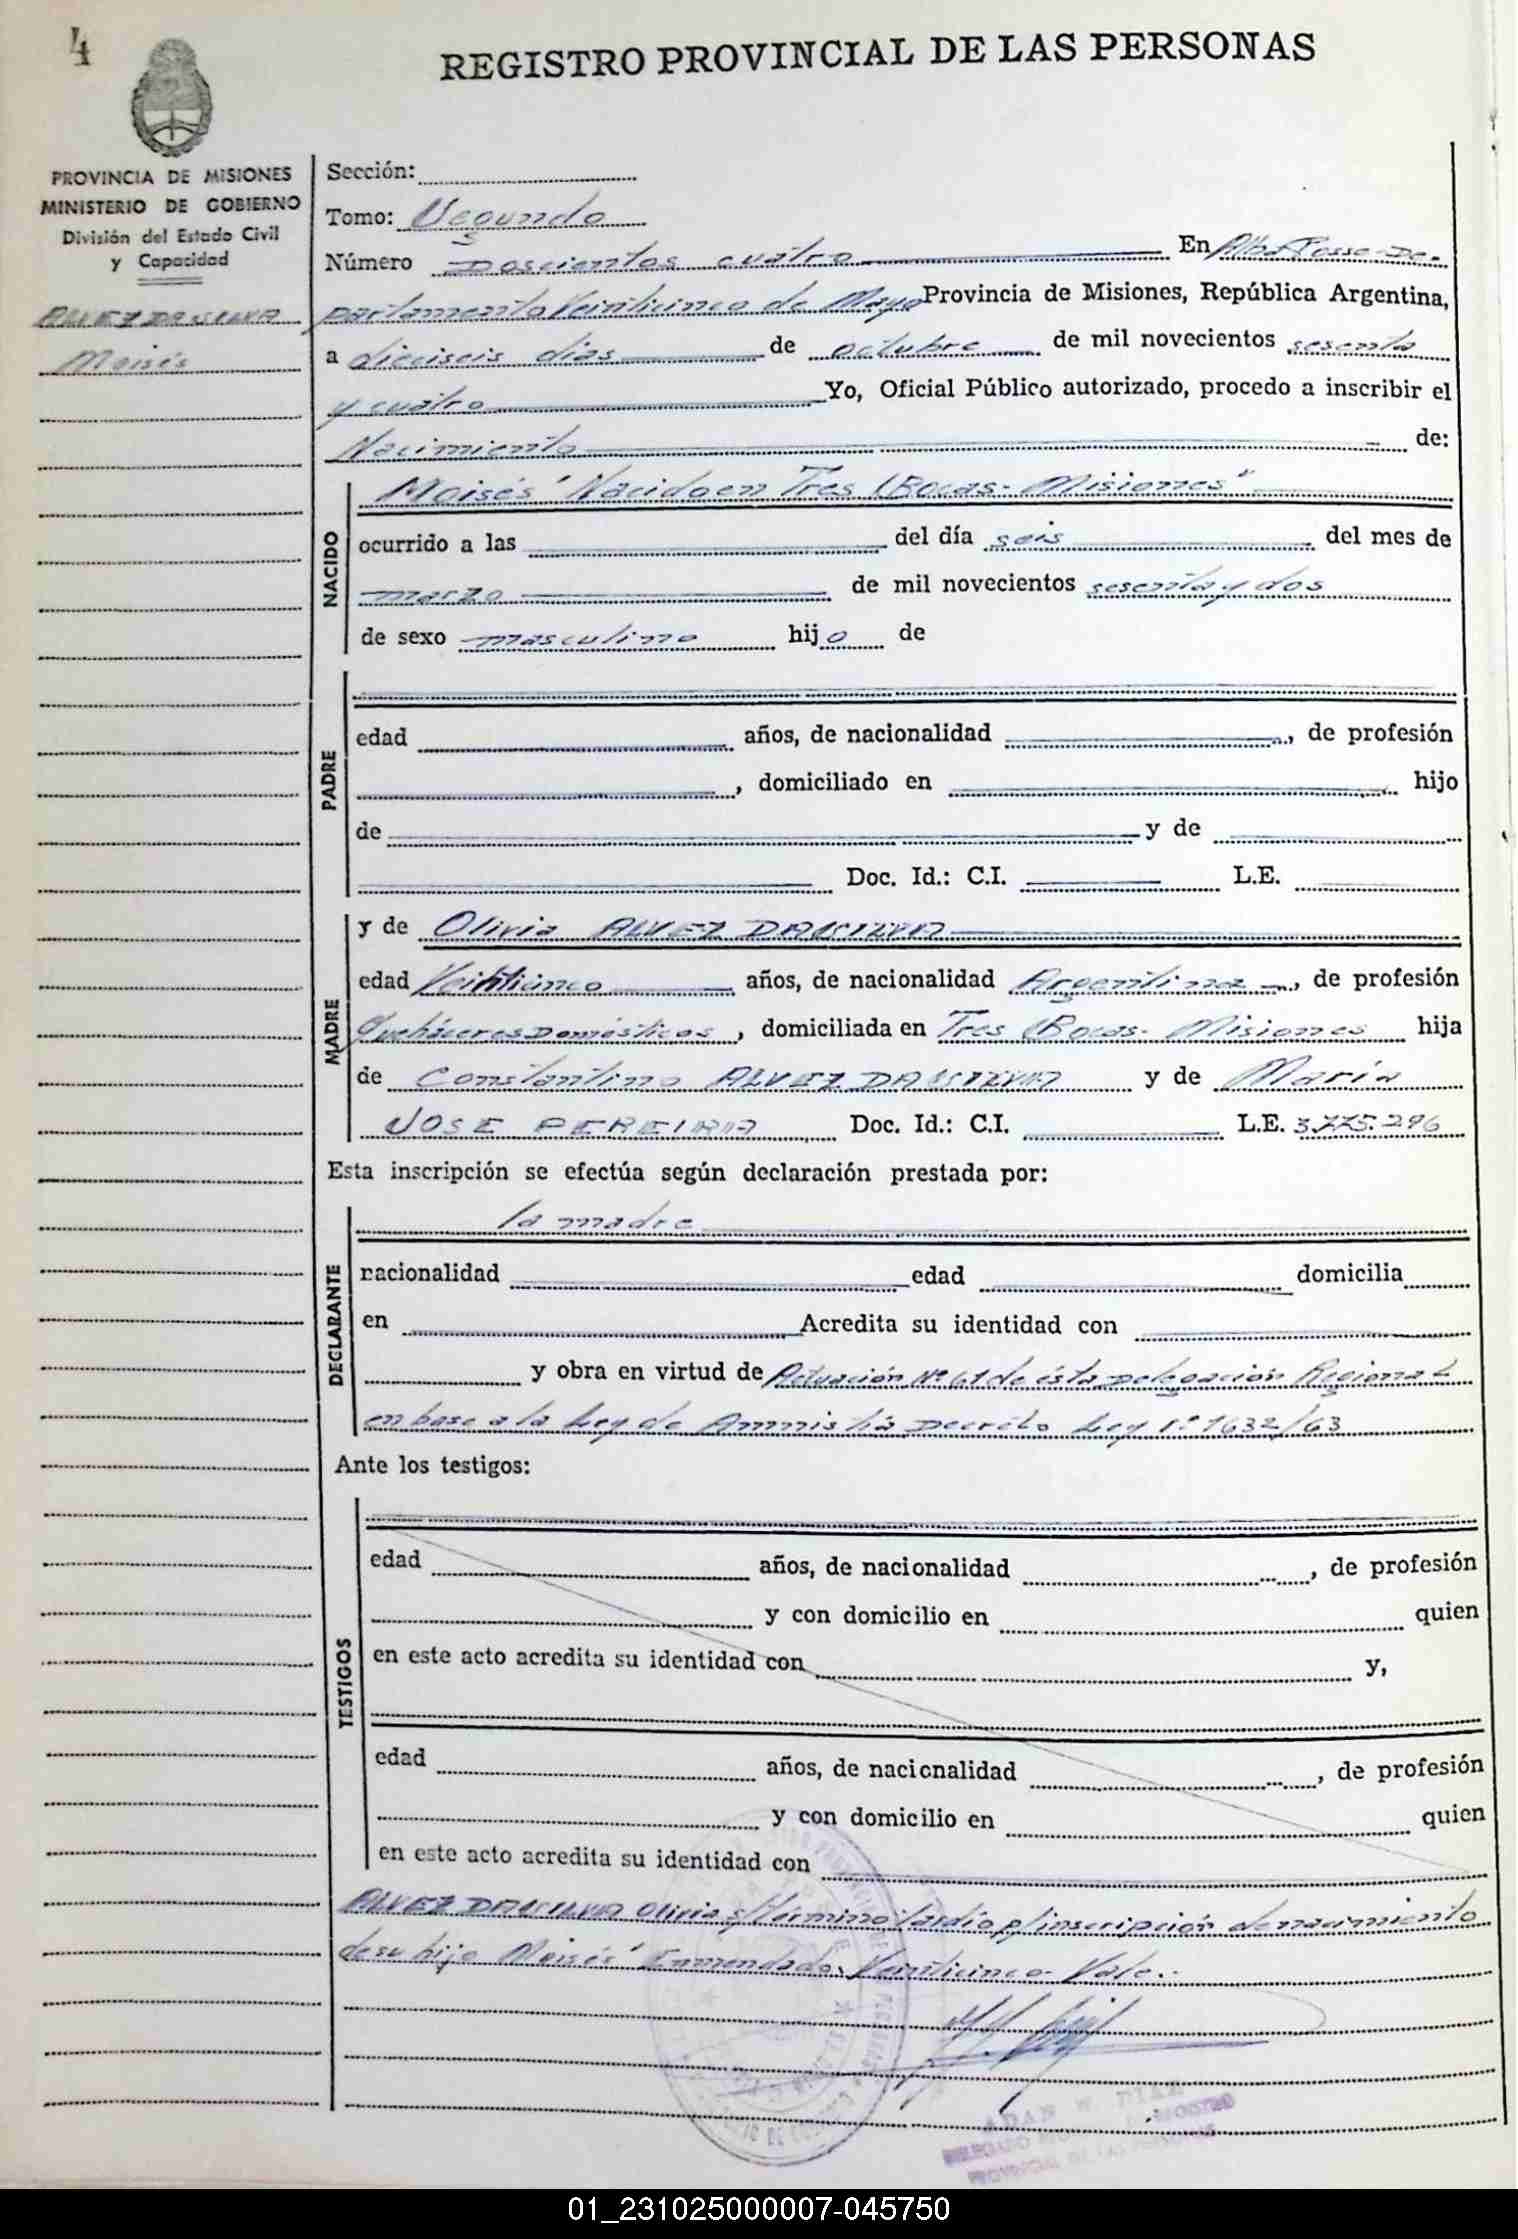 4
REGISTRO PROVINCIAL DE LAS PERSONAS
PROVINCIA DE MISIONES
MINISTERIO DE GOBIERNO
División del Estado Civil
y Capacidad
ALVEZ DA SILVA
Moisés
Sección:
Tomo: Segundo
Número Doscientos cuatro En Alba Posse-De-
partamento Veinticinco de Mayo Provincia de Misiones, República Argentina,
a dieciseis dias de octubre de mil novecientos sesenta
y cuatro Yo, Oficial Público autorizado, procedo a inscribir el
Nacimiento de:
NACIDO
Moisés "Nacido en Tres Bocas- Misiones"
ocurrido a las del día seis del mes de
marzo de mil novecientos sesenta y dos
de sexo masculino hijo de
PADRE
edad años, de nacionalidad , de profesión
, domiciliado en hijo
de y de
Doc. Id.: C.I. L.E.
MADRE
y de Olivia ALVEZ DA SILVA
edad Veinticinco años, de nacionalidad Argentina, de profesión
Quehaceres Domésticos, domiciliada en Tres Bocas- Misiones hija
de Constantino ALVEZ DA SILVA y de María
JOSE PEREIRA Doc. Id.: C.I. L.E. 3.775.296
Esta inscripción se efectúa según declaración prestada por:
DECLARANTE
la madre
nacionalidad edad domicilia
en Acredita su identidad con
y obra en virtud de Actuación Nº 61 de ésta Delegación Regional
en base a la Ley de Amnistía Decreto Ley Nº 1632/63
Ante los testigos:
TESTIGOS
edad años, de nacionalidad , de profesión
y con domicilio en quien
en este acto acredita su identidad con y,
edad años, de nacionalidad , de profesión
y con domicilio en quien
en este acto acredita su identidad con
ALVEZ DA SILVA Olivia s/término tardío p/inscripción de nacimiento
de su hijo Moisés" Enmendado: Veinticinco- Vale.-
ADAN W. DIAZ
DELEGADO REGISTRO
PROVINCIAL DE LAS PERSONAS
01_231025000007-045750